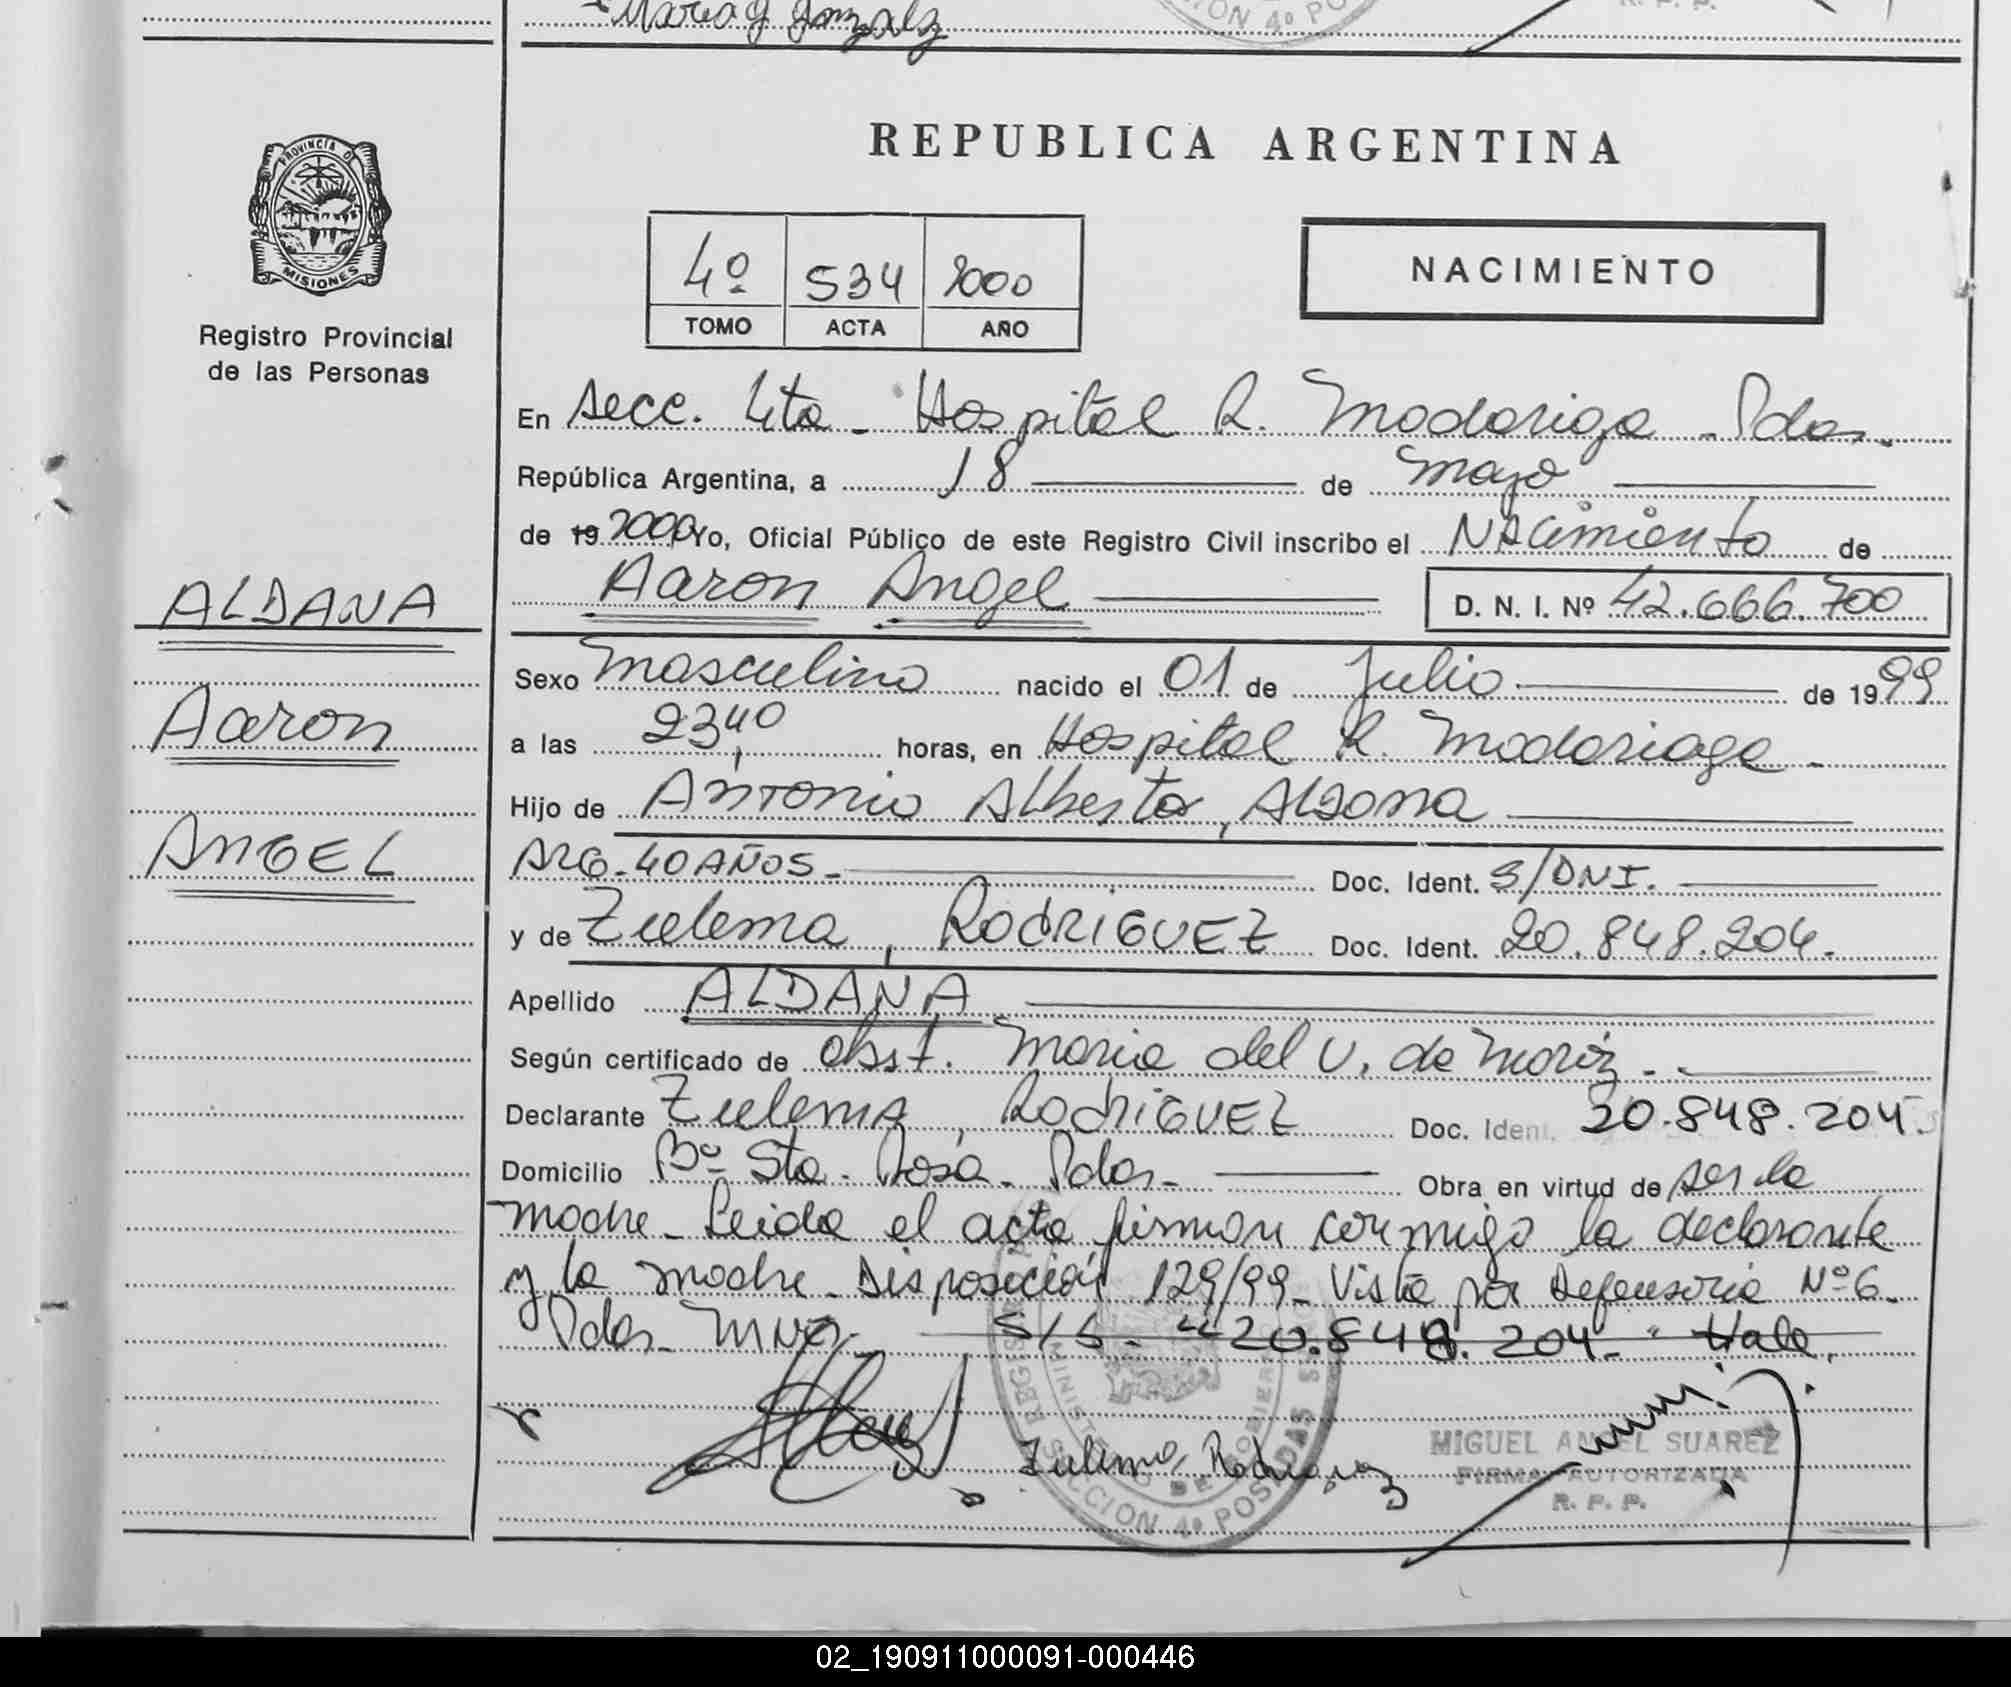 Maria G Gonzalz
REPUBLICA ARGENTINA
PROVINCIA D
MISIONES
Registro Provincial
de las Personas
4º 534 2000
TOMO ACTA AÑO
NACIMIENTO
En secc. 4ta - Hospital R. Madariaga - Pdas.
República Argentina, a 18 de mayo
de 19 2000 Yo, Oficial Público de este Registro Civil inscribo el NAcimiento de
Aaron Angel D. N. I. Nº 42.666.700
ALDANA
Aaron
ANGEL
Sexo masculino nacido el 01 de Julio de 1999
a las 23,40 horas, en Hospital R. Madariaga -
Hijo de Antonio Alberto, ALDANA
ARG. 40 AÑOS - Doc. Ident. S/DNI.
y de Zulema, RodRIGUEZ Doc. Ident. 20.848.204.
Apellido ALDANA
Según certificado de obst. Maria del V. de Moriz -
Declarante Zulema, RodRIGUEZ Doc. Ident. 20.848.204.
Domicilio Bº Sta. Rosa - Pdas - Obra en virtud de ser la
madre - Leida el acta firman conmigo la declarante
y la madre - Disposición 129/99 - Vista por Defensoria Nº 6 -
Pdas - Mnes. S/S - "20.848.204 - " Vale.
Zulema Rodriguez
SECCION 4º POSADAS
MIGUEL ANGEL SUAREZ
FIRMA AUTORIZADA
R. P. P.
02_190911000091-000446